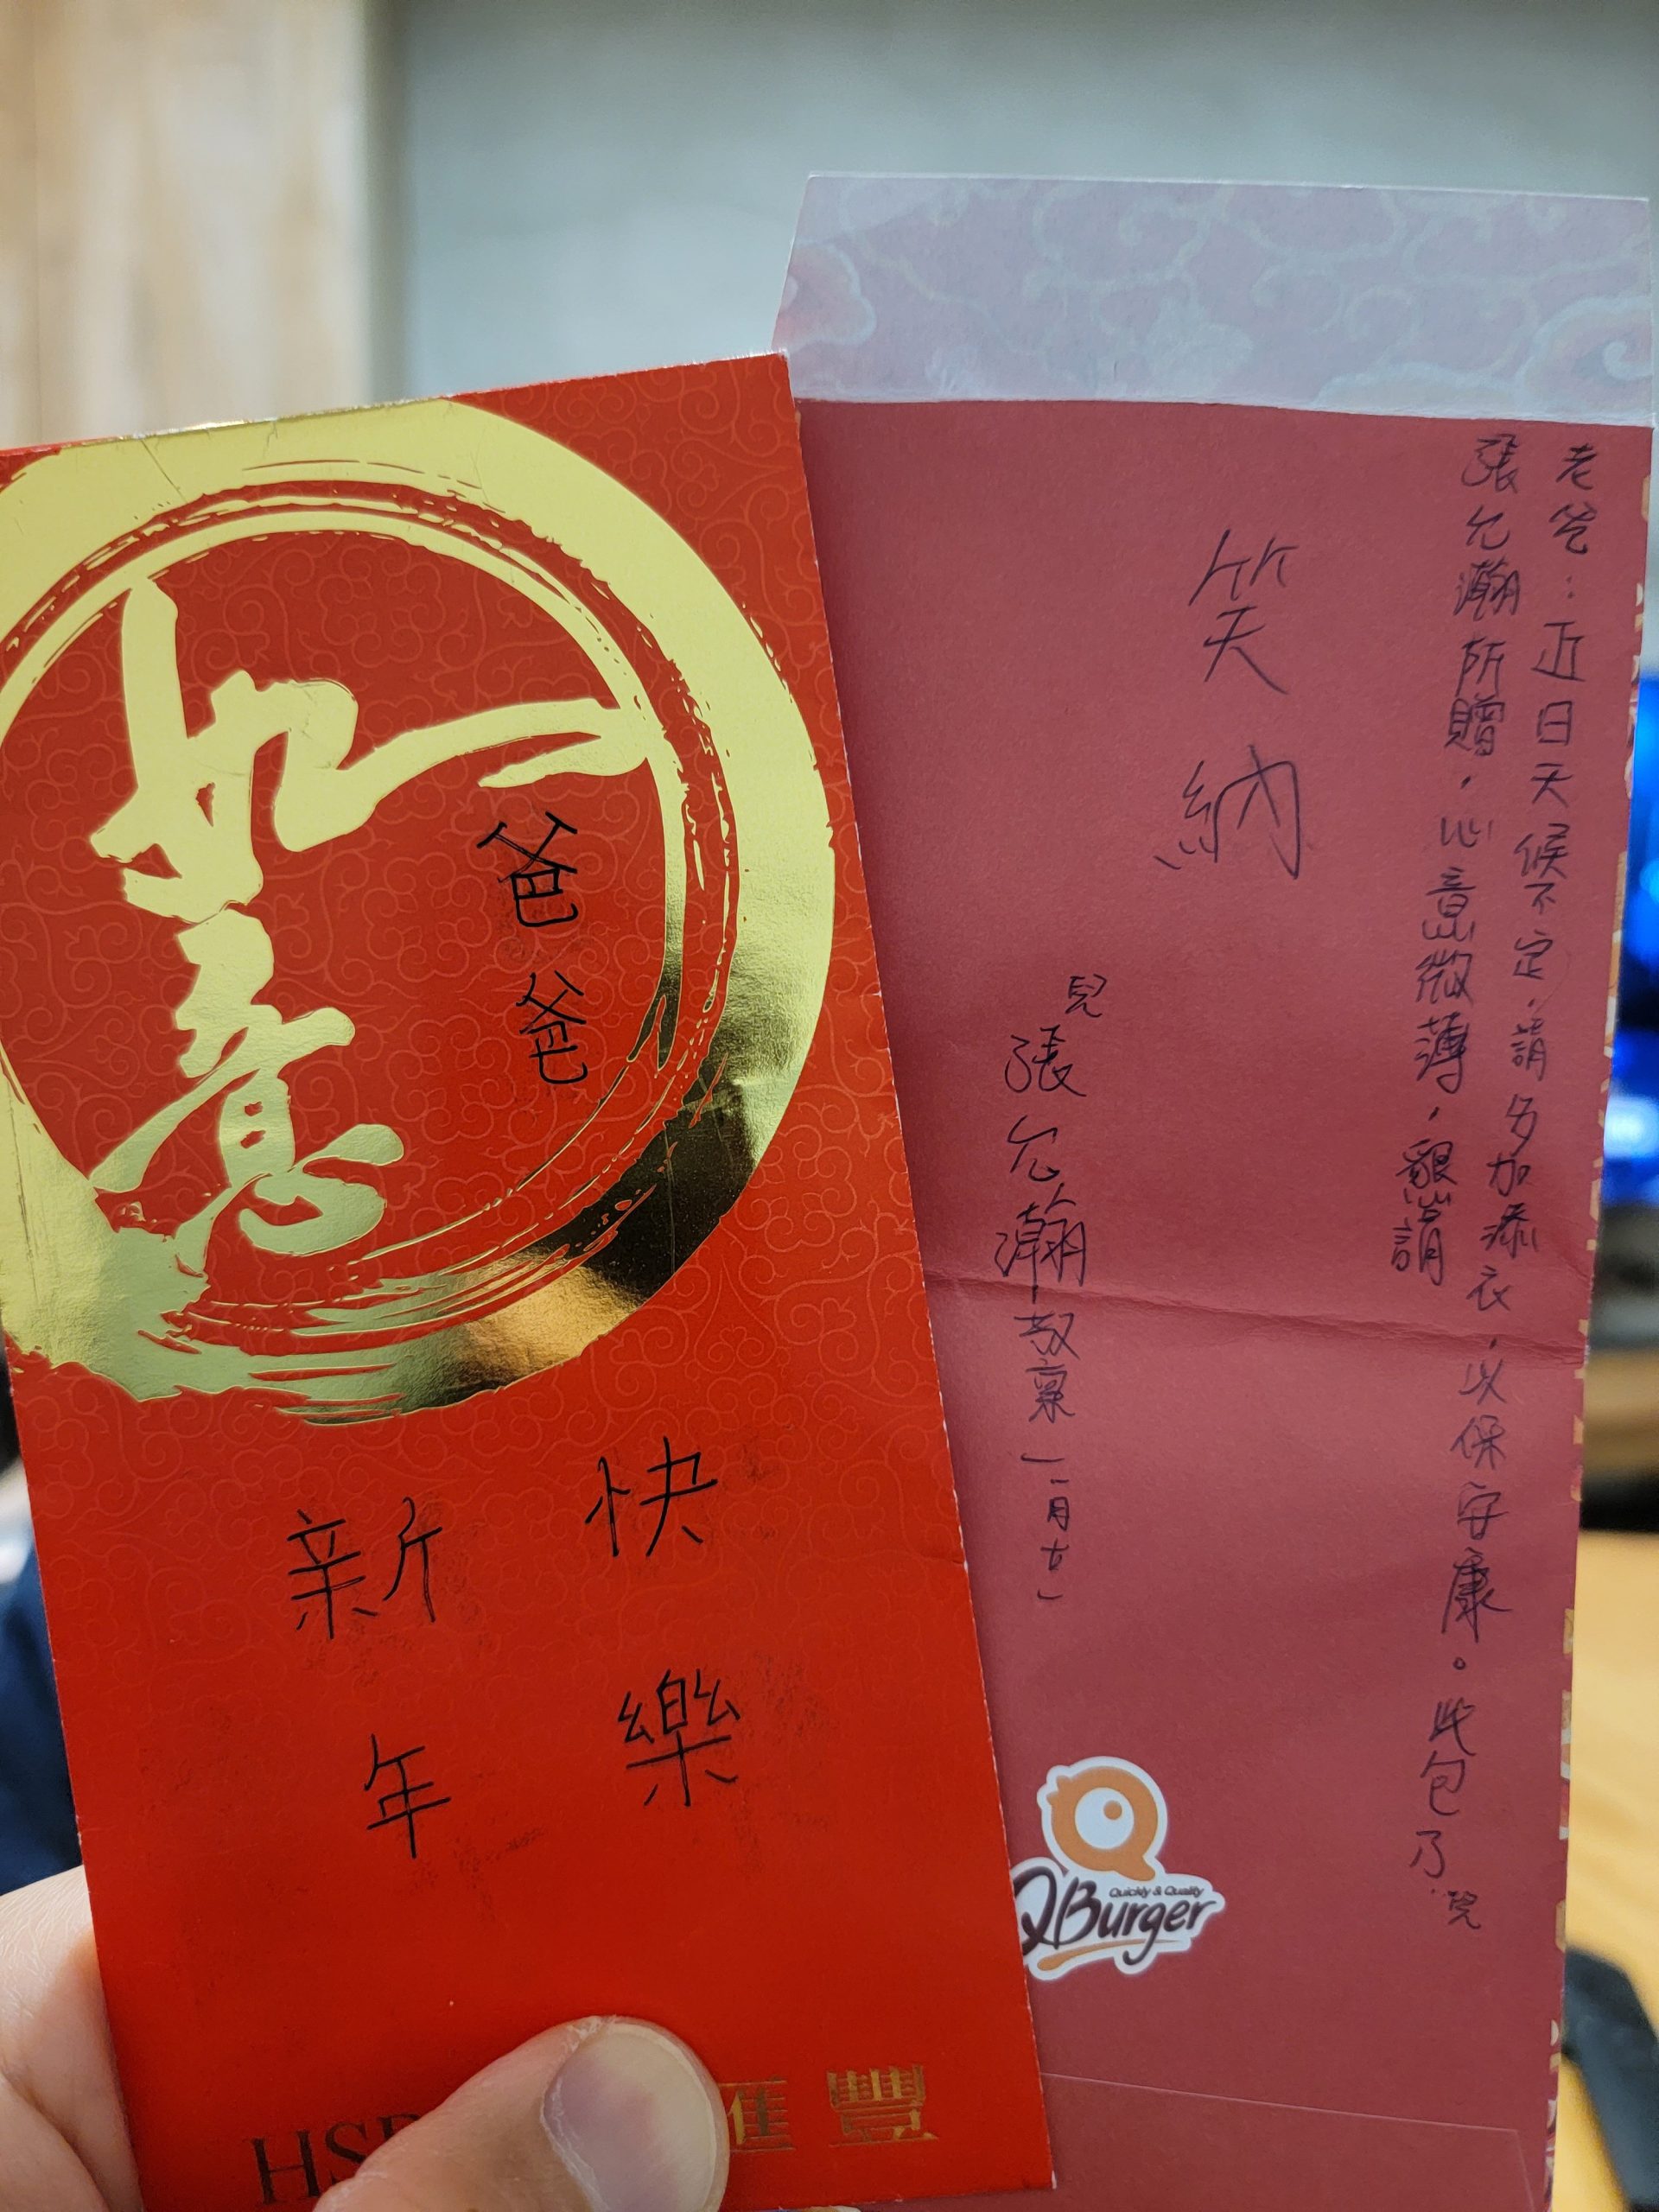 如意
爸爸
新年
快樂
HS
匯豐
老爸：近日天候不定，請多加添衣，以保安康。此包乃兒
張允瀚所贈，心意微薄，懇請
笑納
兒
張允瀚敬稟
Quickly & Quality
QBurger